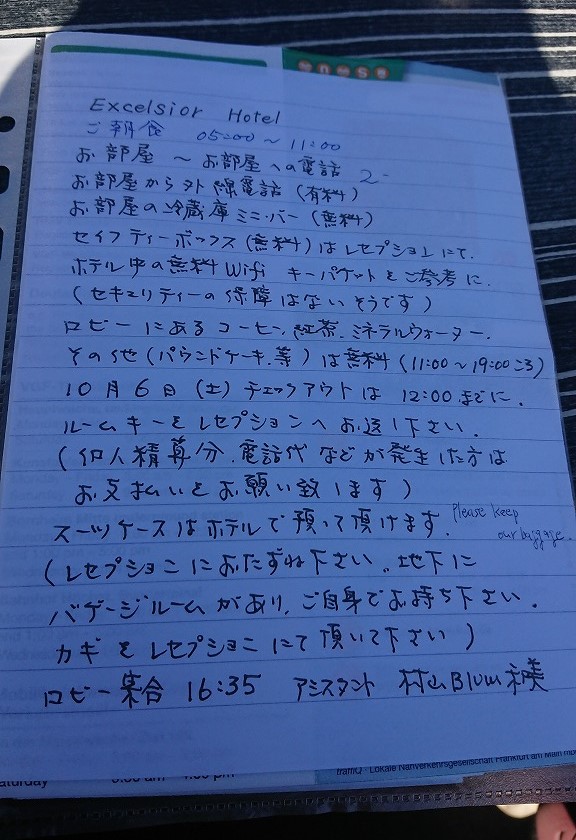 Excelsior Hotel
ご朝食 05:00～11:00
お部屋 ～ お部屋への電話 2-
お部屋から外線電話 (有料)
お部屋の冷蔵庫ミニ・バー (無料)
セイフティーボックス(無料)はレセプションにて.
ホテル中の無料Wifi キーパケットをご参考に.
(セキュリティーの保障はないそうです)
ロビーにあるコーヒー, 紅茶.ミネラルウォーター.
その他(パウンドケーキ.等)は無料(11:00～19:00ごろ)
10月6日(土)チェックアウトは 12:00までに.
ルームキーをレセプションへお返し下さい.
(個人精算分.電話代などが発生した方は
お支払いをお願い致します)
スーツケースはホテルで預って頂けます. Please keep
our baggage.
(レセプションにおたずね下さい。地下に
バゲージルームがあり,ご自身でお持ち下さい.
カギをレセプションにて頂いて下さい)
ロビー集合 16:35 アシスタント 村山Blum
aturday
traffiQ - Lokale Nahverkehrsgesellschaft Frankfurt am Main